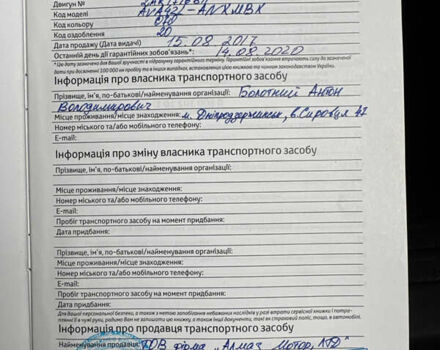 Двигун №
Код моделі AVA42L-ANXMBX
Код кольору 070
Код оздоблення 20
Дата продажу (Дата видачі) 15.08.2017
Останній день дії гарантійних зобов'язань* 14.08.2020
Інформація про власника транспортного засобу
Прізвище, ім'я, по-батькові/найменування організації: Болотний Антон
Володимирович
Місце проживання/місце знаходження: м. Дніпродзержинськ,
Номер міського та/або мобільного телефону:
E-mail:
Інформація про зміну власника транспортного засобу
Прізвище, ім'я, по-батькові/найменування організації:
Місце проживання/місце знаходження:
Номер міського та/або мобільного телефону:
E-mail:
Пробіг транспортного засобу на момент придбання:
Дата придбання:
Прізвище, ім'я, по-батькові/найменування організації:
Місце проживання/місце знаходження:
Номер міського та/або мобільного телефону:
E-mail:
Пробіг транспортного засобу на момент придбання:
Дата придбання:
Інформація про продавця транспортного засобу
Найменування продавця: ТОВ фірма "Алмаз Мотор, ЛТД"